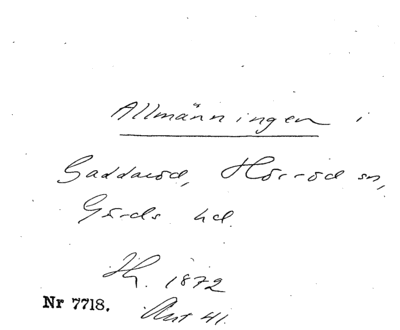 Allmänningen i
Gaddaröd, Hörröd sn,
Gärds hd.
Hg. 1872
Nr 7718. Ant 41.